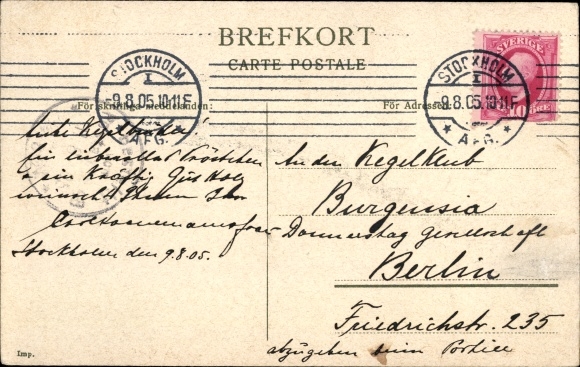 BREFKORT
CARTE POSTALE
STOCKHOLM
I
-9.8.05.10-11F.
A.F.G.
STOCKHOLM
I
-9.8.05.10-11F.
A.F.G.
SVERIGE
10 ÖRE
För skriftliga meddelanden:
För Adressen
Gute Kegelbrüder
für
ein kräftig Gut Holz
wünscht Ihnen Ihr
Stockholm den 9.8.05.
An den Kegelklub
Burgussia
Donnerstag Gesellschaft
Berlin
Friedrichstr. 235
abzugeben beim Portier
Imp.